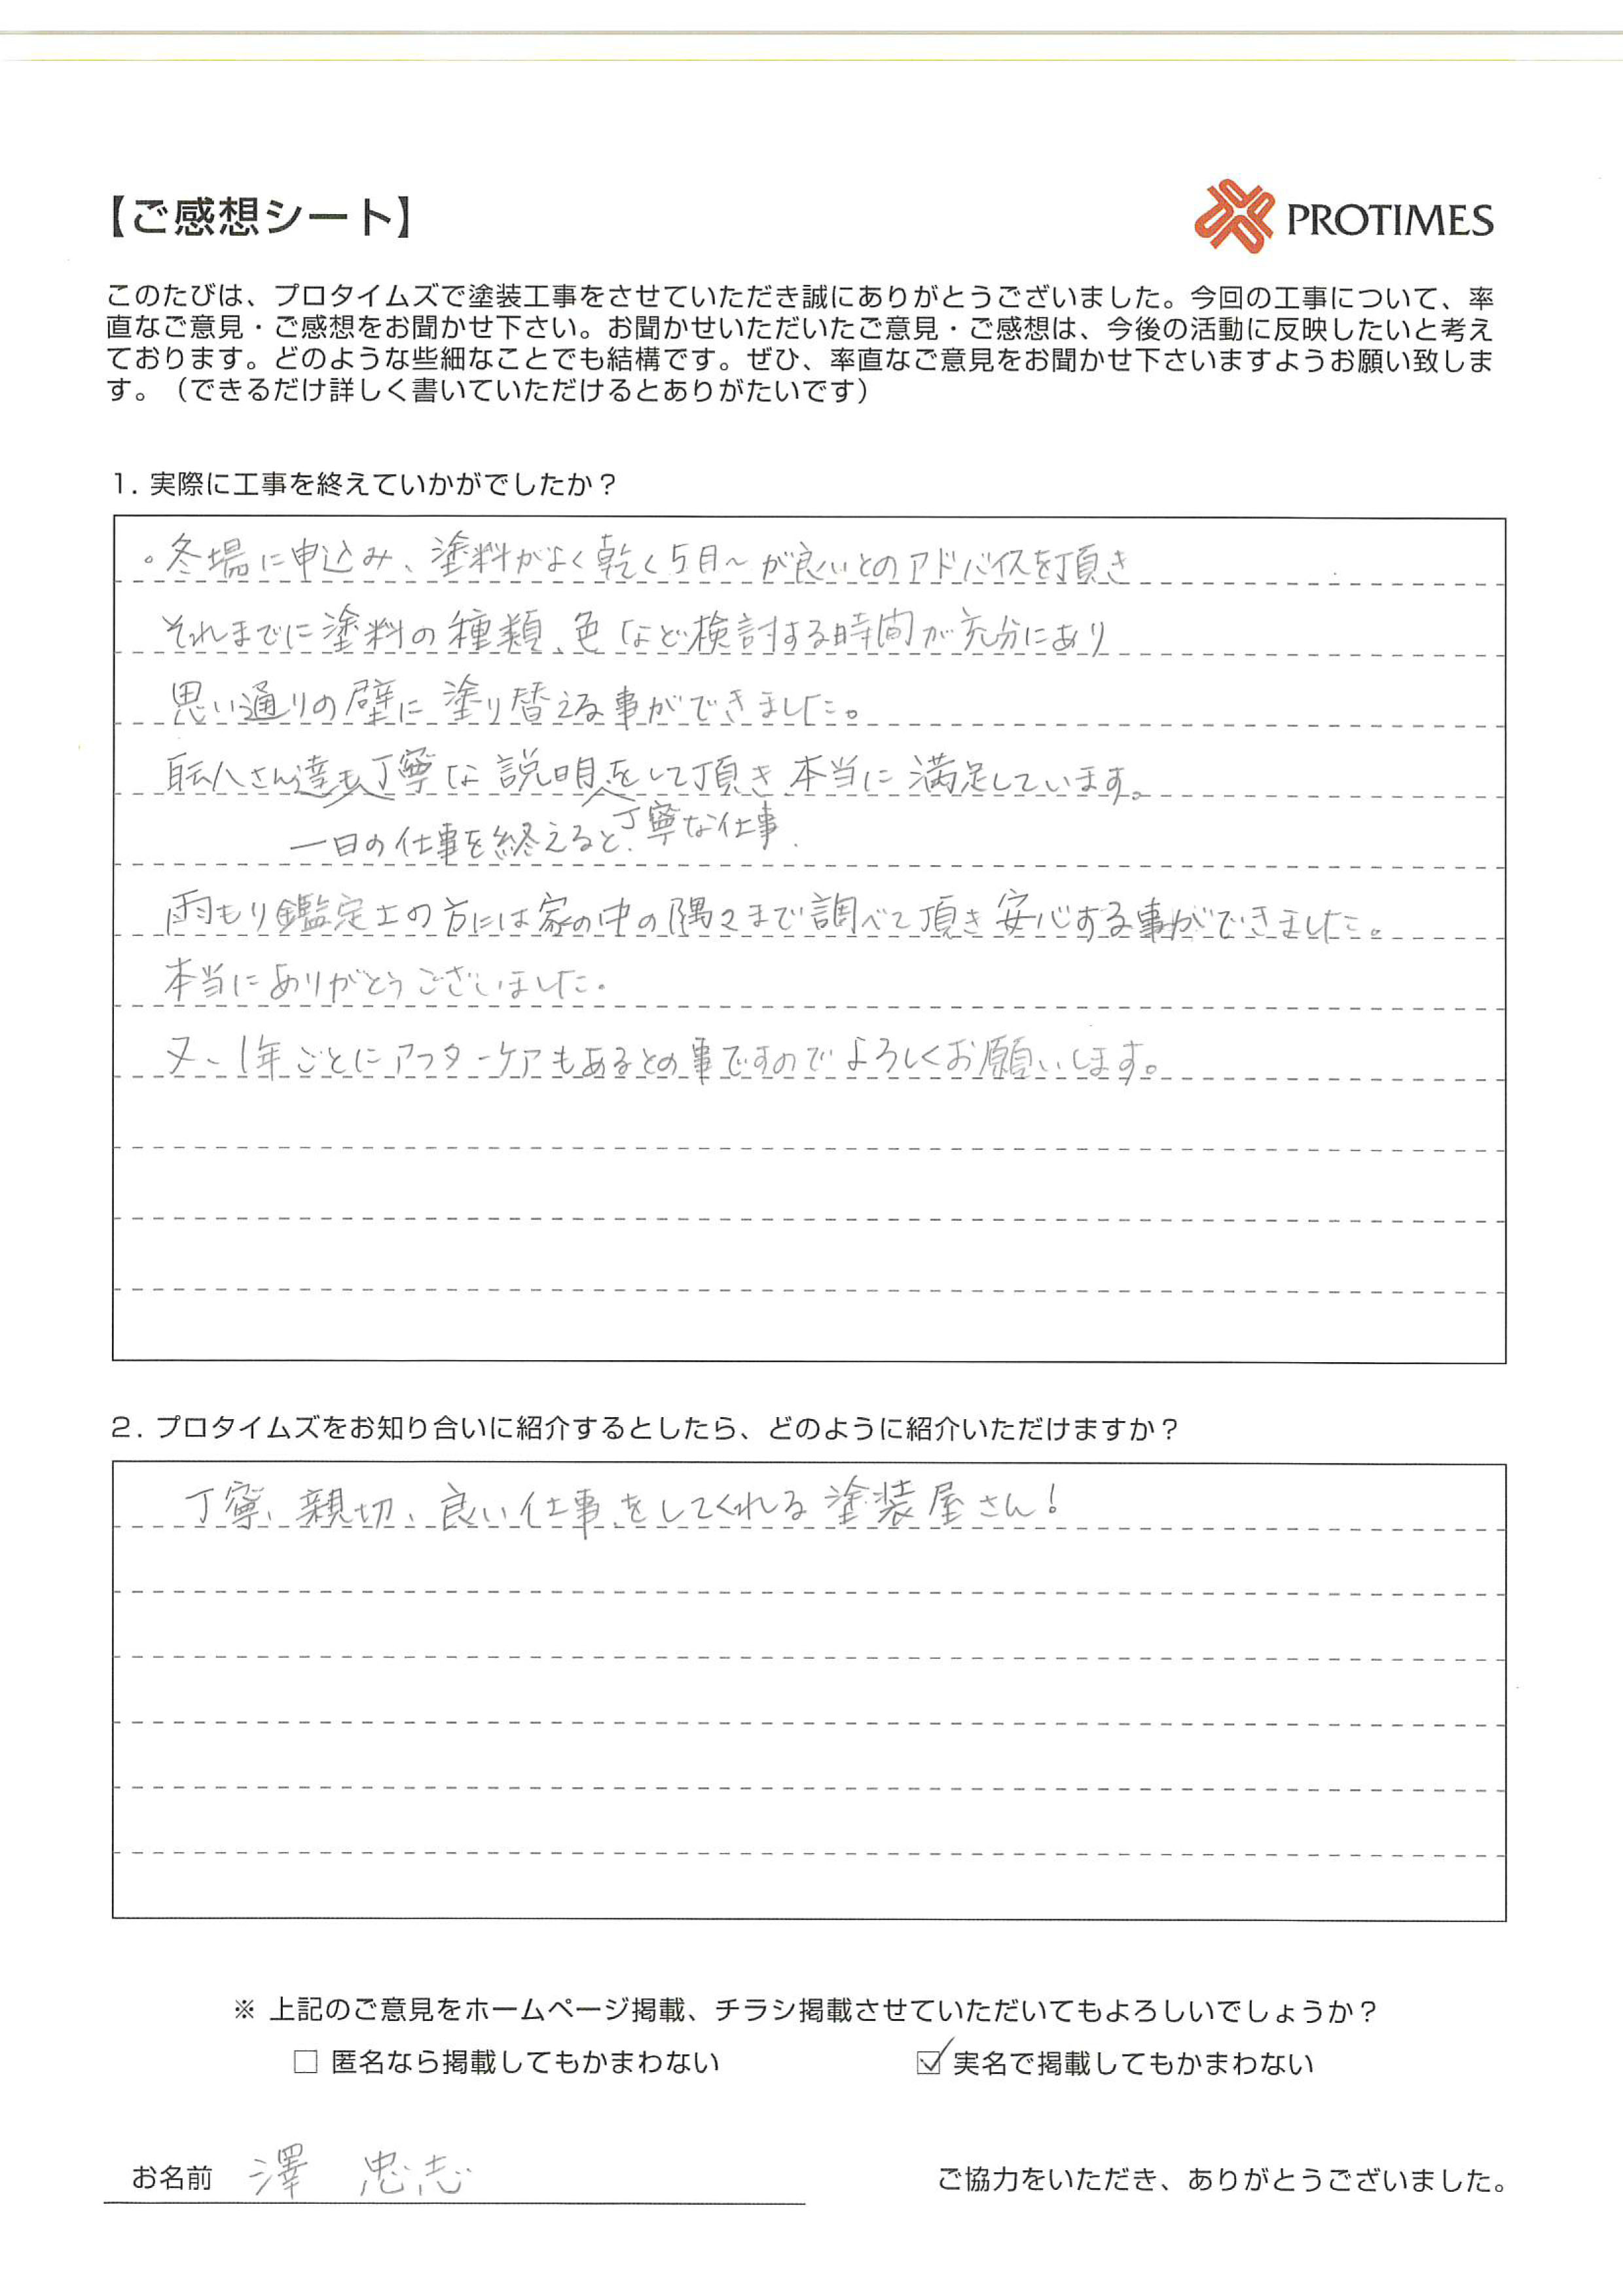 【ご感想シート】
PROTIMES
このたびは、プロタイムズで塗装工事をさせていただき誠にありがとうございました。今回の工事について、率
直なご意見・ご感想をお聞かせ下さい。お聞かせいただいたご意見・ご感想は、今後の活動に反映したいと考え
ております。どのような些細なことでも結構です。ぜひ、率直なご意見をお聞かせ下さいますようお願い致しま
す。（できるだけ詳しく書いていただけるとありがたいです）
1. 実際に工事を終えていかがでしたか？
。冬場に申込み、塗料がよく乾く5月～が良いとのアドバイスを頂き
それまでに塗料の種類、色など検討する時間が充分にあり
思い通りの壁に塗り替える事ができました。
職人さん達も丁寧な説明をして頂き本当に満足しています。
一日の仕事を終えると、丁寧な仕事、
雨もり鑑定士の方には家の中の隅々まで調べて頂き安心する事ができました。
本当にありがとうございました。
又、1年ごとにアフターケアもあるとの事ですのでよろしくお願いします。
2. プロタイムズをお知り合いに紹介するとしたら、どのように紹介いただけますか？
丁寧、親切、良い仕事をしてくれる塗装屋さん!
※ 上記のご意見をホームページ掲載、チラシ掲載させていただいてもよろしいでしょうか？
□ 匿名なら掲載してもかまわない ☑ 実名で掲載してもかまわない
お名前 澤 忠志 ご協力をいただき、ありがとうございました。